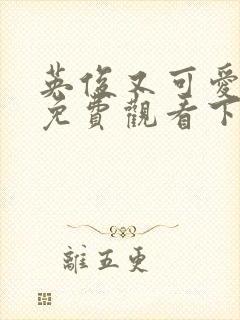 英俊又可愛
免費觀看下
離五更